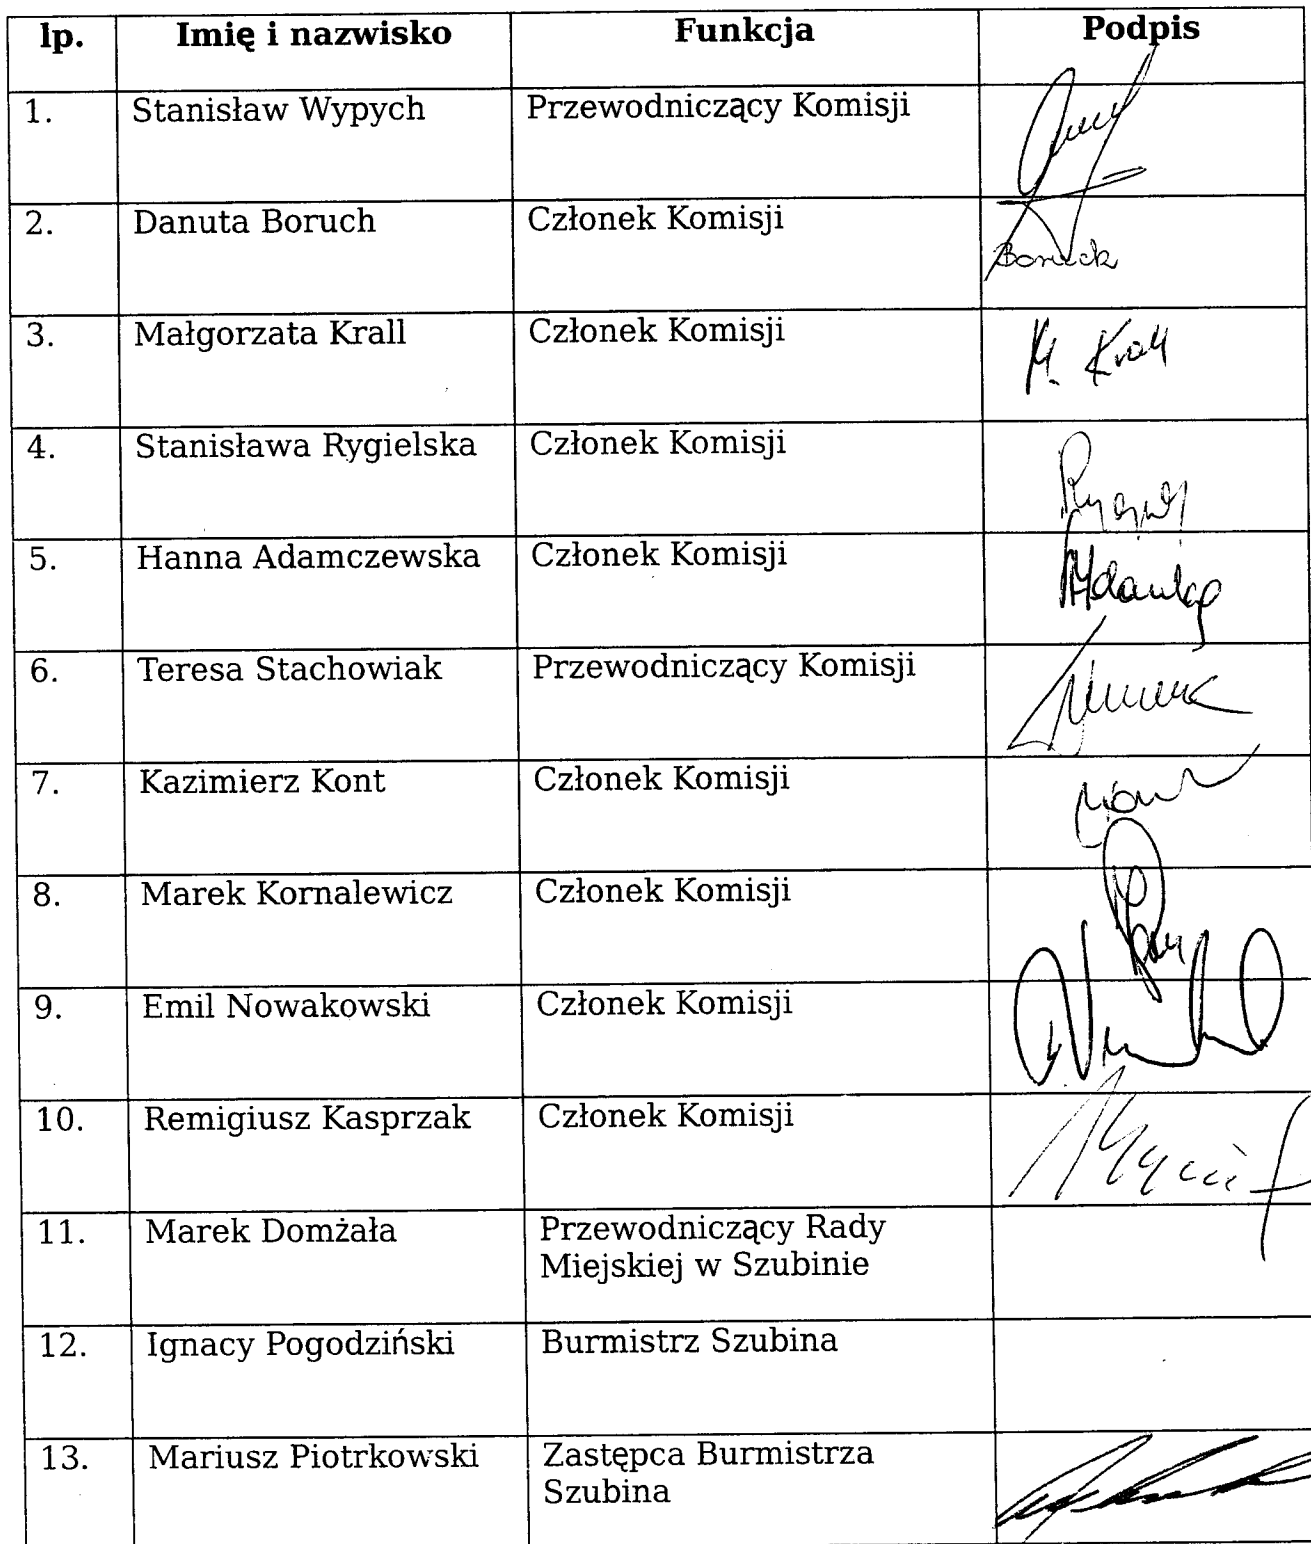 lp. Imię i nazwisko Funkcja Podpis
1. Stanisław Wypych Przewodniczący Komisji
2. Danuta Boruch Członek Komisji
3. Małgorzata Krall Członek Komisji M. Krall
4. Stanisława Rygielska Członek Komisji
5. Hanna Adamczewska Członek Komisji
6. Teresa Stachowiak Przewodniczący Komisji
7. Kazimierz Kont Członek Komisji
8. Marek Kornalewicz Członek Komisji
9. Emil Nowakowski Członek Komisji
10. Remigiusz Kasprzak Członek Komisji
11. Marek Domżała Przewodniczący Rady
Miejskiej w Szubinie
12. Ignacy Pogodziński Burmistrz Szubina
13. Mariusz Piotrkowski Zastępca Burmistrza
Szubina